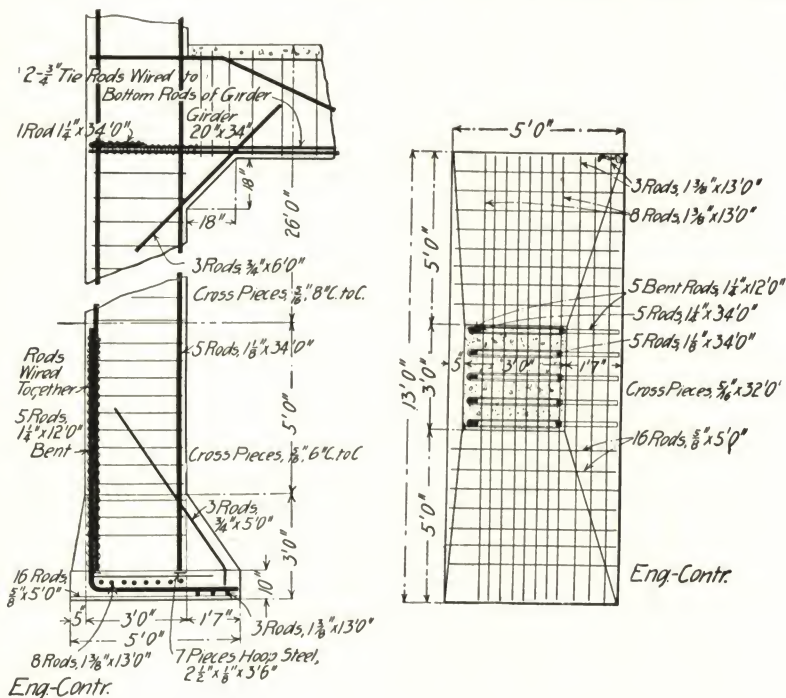 2-3/4" Tie Rods Wired to
Bottom Rods of Girder
Girder
20"x34"
1 Rod 1 1/4"x34'0"
18"
18"
26'0"
3 Rods, 3/4"x6'0"
Cross Pieces, 5/16", 8"C. to C.
Rods
Wired
Together
5 Rods,
1 1/4"x12'0"
Bent
5 Rods, 1 1/8"x34'0"
5'0"
Cross Pieces, 6"C. to C.
3 Rods,
3/4"x5'0"
3'0"
16 Rods,
5/8"x5'0"
10"
5"
3'0"
1'7"
5'0"
3 Rods, 1 3/8"x13'0"
8 Rods, 1 3/8"x13'0"
7 Pieces Hoop Steel,
2 1/2"x1/8"x3'6"
Eng.-Contr.
5'0"
3 Rods, 1 3/8"x13'0"
8 Rods, 1 3/8"x13'0"
5'0"
5 Bent Rods, 1 1/4"x12'0"
5 Rods, 1 1/4"x34'0"
5 Rods, 1 1/8"x34'0"
13'0"
3'0"
5"
3'0"
1'7"
Cross Pieces, 5/16"x32'0"
16 Rods, 5/8"x5'0"
5'0"
Eng.-Contr.